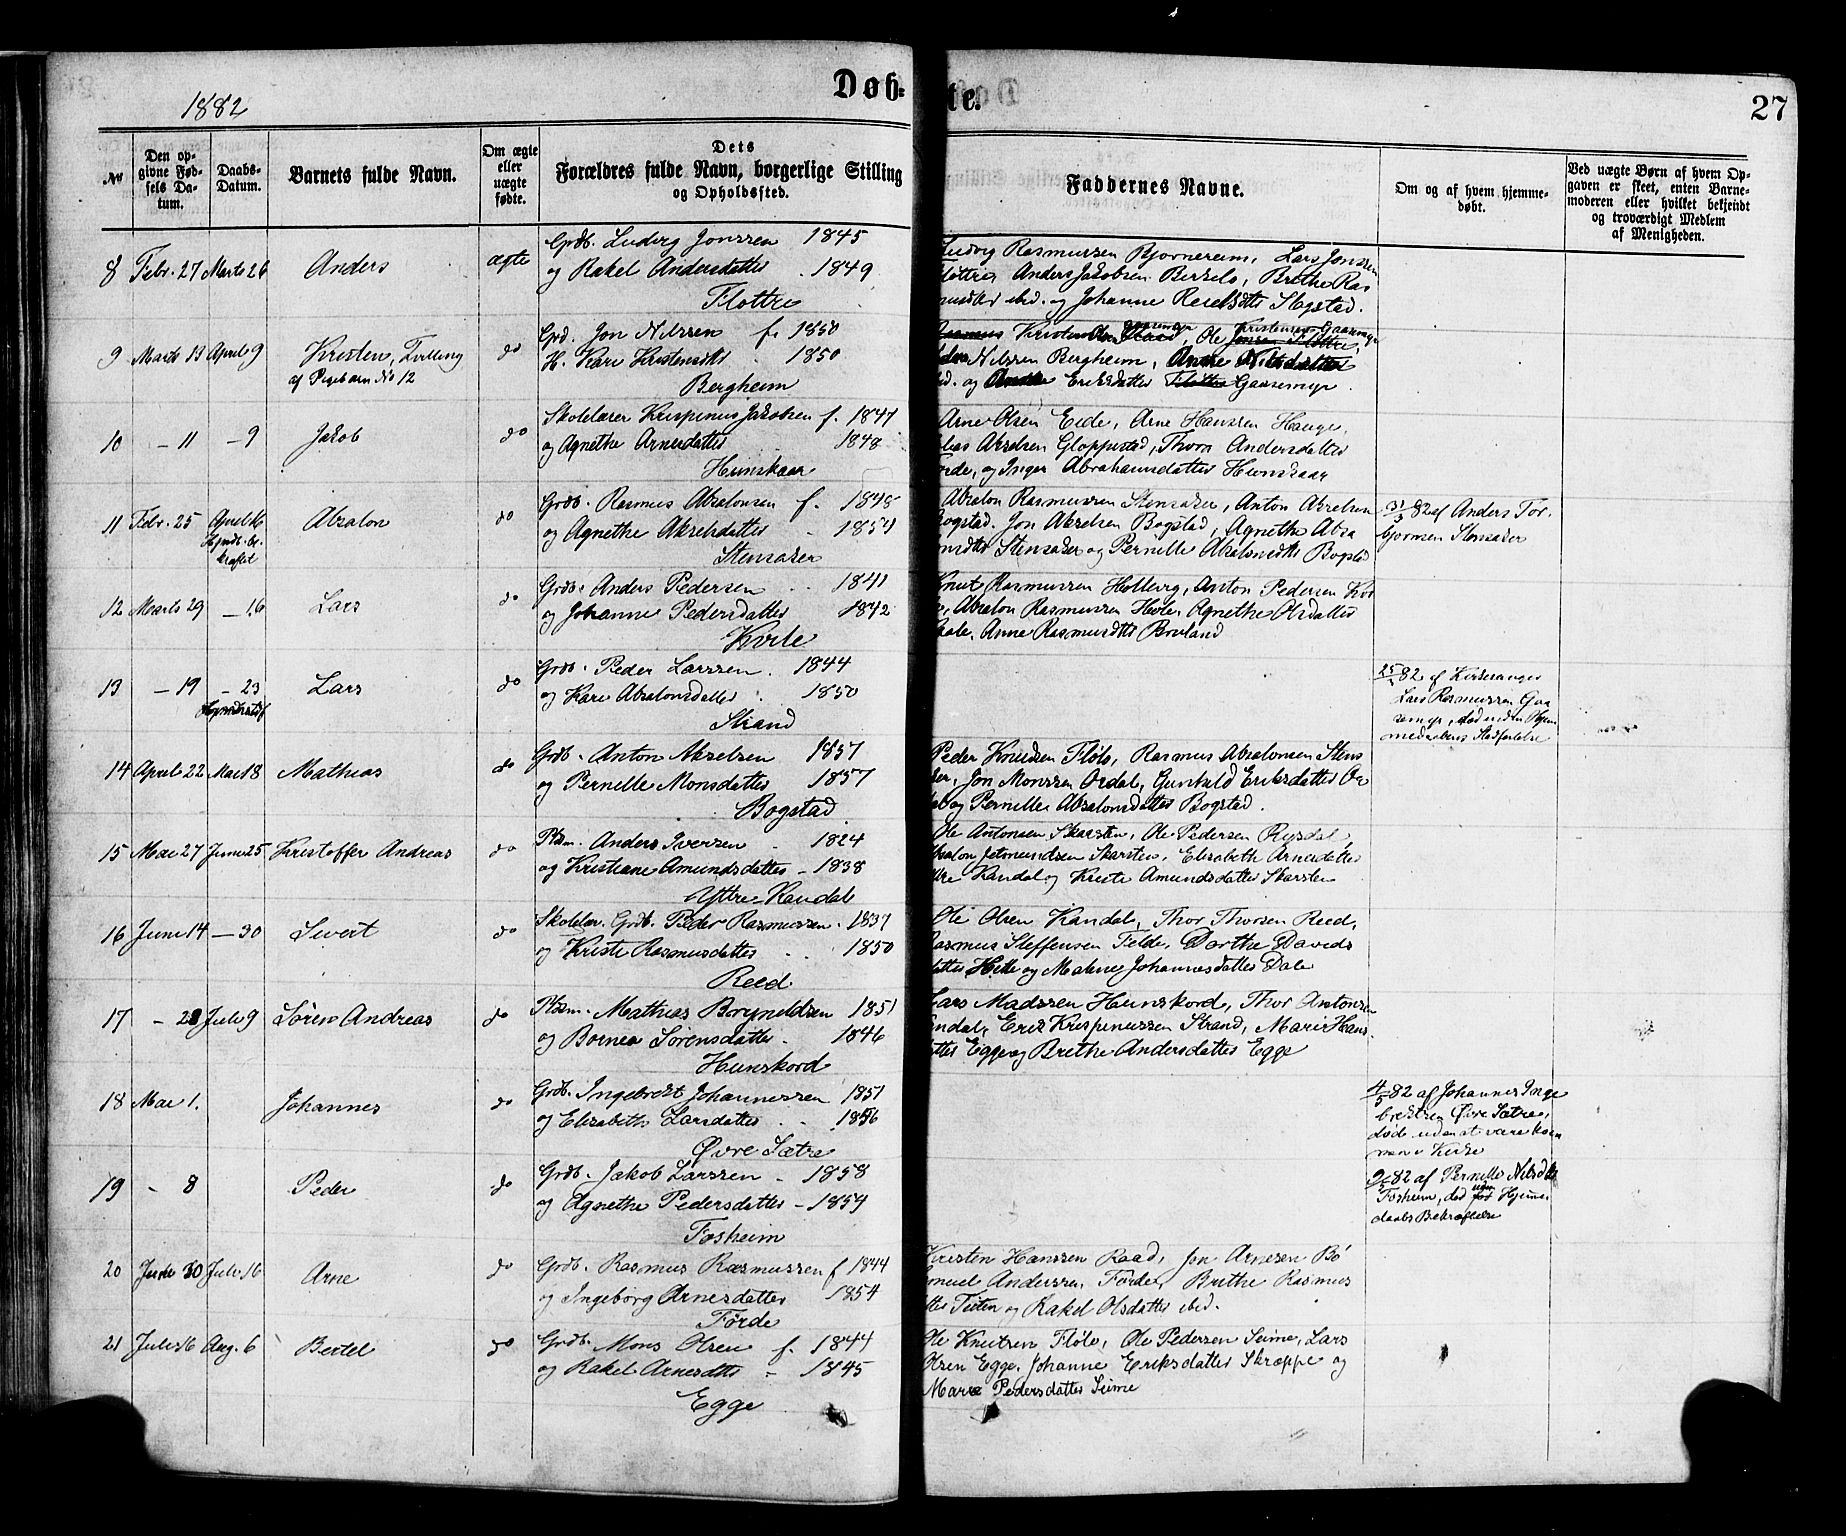 1882
Døb-
te.
27
№
Den opgivne Fødsels Datum.
Daabs-Datum.
Barnets fulde Navn.
Om ægte eller uægte fødte.
Dets Forældres fulde Navn, borgerlige Stilling og Opholdssted.
Faddernes Navne.
Om og af hvem hjemmedøbt.
Ved uægte Børn af hvem Opgaven er skeet, enten Barnemoderen eller hvilket bekjendt og troværdigt Medlem af Menigheden.
8 Febr. 27 Marts 26 Anders ægte
Grdb. Ludvig Jonssen 1845
og Rakel Andersdatter 1849
Flottre
Ludvig Rasmussen Bjørnereim, Lars Jonssen
Flottre Anders Jakobsen Birkelo, Brithe Ras
ibid. og Johanne Stegstad.
9 Marts 13 April 9 Kristen, Tvilling
af Pigebarn No 12
do
Grd. Jon Nilssen f. 1850
H. Kari Kristensdtt 1850
Bergheim
Kristen Olsen Gaasemyr, Ole Kristensen Gaasemyr
Nilssen Bergheim,
og Eriksdatter Gaasemyr.
10 – 11 – 9 Jakob do
Skolelærer Krispinus Jakobsen f. 1847
og Agnethe Arnesdatter 1848
Hunskaar
Arne Olsen Eide, Arne Hanssen Hauge,
Akselsen Gloppestad, Thora Andersdatter
Førde, og Inger Abrahamsdatter Hunskaar
11 Febr. 25 April 16 Absalon do
Hjmdb. bekræftet
Grdb. Rasmus Absalonsen f. 1848
og Agnethe Akselsdatter 1854
Stensaker
Absalon Rasmussen Stensaker, Anton Akselsen
Bogstad. Jon Akselsen Bogstad, Agnethe Absa
Stensaker og Pernille Absalonsdtt Bogstad
82 af Anders Tor-
bjørnsen Stensaker
12 Marts 29 – 16 Lars do
Grdb. Anders Pedersen 1841
og Johanne Pedersdatter 1842
Kvile
Knut Rasmussen Hollevig, Anton Pedersen
Absalon Rasmussen Hole, Agnethe Olsdatter
Anne Rasmusdtt Bruland
13 – 19 – 23 Lars do
Grdb. Peder Larssen 1844
og Kari Absalonsdatter 1850
Strand
82 af Kirkesanger
Lars Rasmussen Gaa
semyr, død uden Hjem
medaabens Stadfæstelse
14 April 22 Mai 18 Mathias do
Grdb. Anton Akselsen 1857
og Pernille Monsdatter 1857
Bogstad
Peder Knudsen Fløle, Rasmus Absalonsen Stens
aker, Jon Monssen Ordal, Gunhild Eriksdatter Or
dal og Pernille Absalonsdatter Bogstad.
15 Mai 27 Juni 25 Kristoffer Andreas do
Plsm. Anders Iversen 1824
og Kristiane Amundsdatter – 1838
Yttre Kandal
Ole Antonsen Skarsten, Ole Pedersen Rysdal,
Absalon Jetmundsen Skarsten, Elisabeth Arnesdatter
Yttre Kandal og Kristi Amundsdatter Skarsten
16 Juni 14 – 30 Sivert do
Skolelær. Grdb. Peder Rasmussen 1837
og Kristi Rasmusdatter 1850
Reed
Ole Olsen Kandal, Thor Thorsen Reed,
Rasmus Steffensen Felde, Dorthe Davids
datter Hetle og Malene Johannesdatter Dale
17 – 28 Juli 9 Søren Andreas do
Plsm. Mathias Brynildsen 1851
og Bornea Sørensdatter 1846
Hunskord
Lars Madssen Hunskord, Thor Antonsen
Erik Krispinussen Strand, Marie Hans
datter Egge og Brithe Andersdatter Egge
18 Mai 1. Johannes do
Grdb. Ingebrekt Johannessen 1851
og Elisabeth Larsdatter 1856
Øvre Sætre
4/5 82 af Johannes Inge
brektsen Øvre Sætre,
død uden at være kom
men i Kirke
19 – 8 Peder do
Grdb. Jakob Larssen 1858
og Agnethe Pedersdatter – 1854
Fosheim
9/5 82 af Pernille Nilsdtt
Fosheim, død uden Hjemme
daabs Bekræftelse
20 Juni 30 Juli 16 Arne do
Grdb. Rasmus Rasmussen f 1844
og Ingeborg Arnesdatter 1854
Førde
Kristen Hanssen Raad, Jon Arnesen Bø
Samuel Anderssen Førde, Brithe Rasmus
datter Teiten og Rakel Olsdatter ibid.
21 Juli 16 Aug. 6 Bertel do
Grdb. Mons Olsen f. 1844
og Rakel Arnesdtt – 1845
Egge
Ole Knutsen Fløle, Ole Pedersen Seime, Lars
Olsen Egge, Johanne Eriksdatter Skræppe og
Marie Pedersdatter Seime